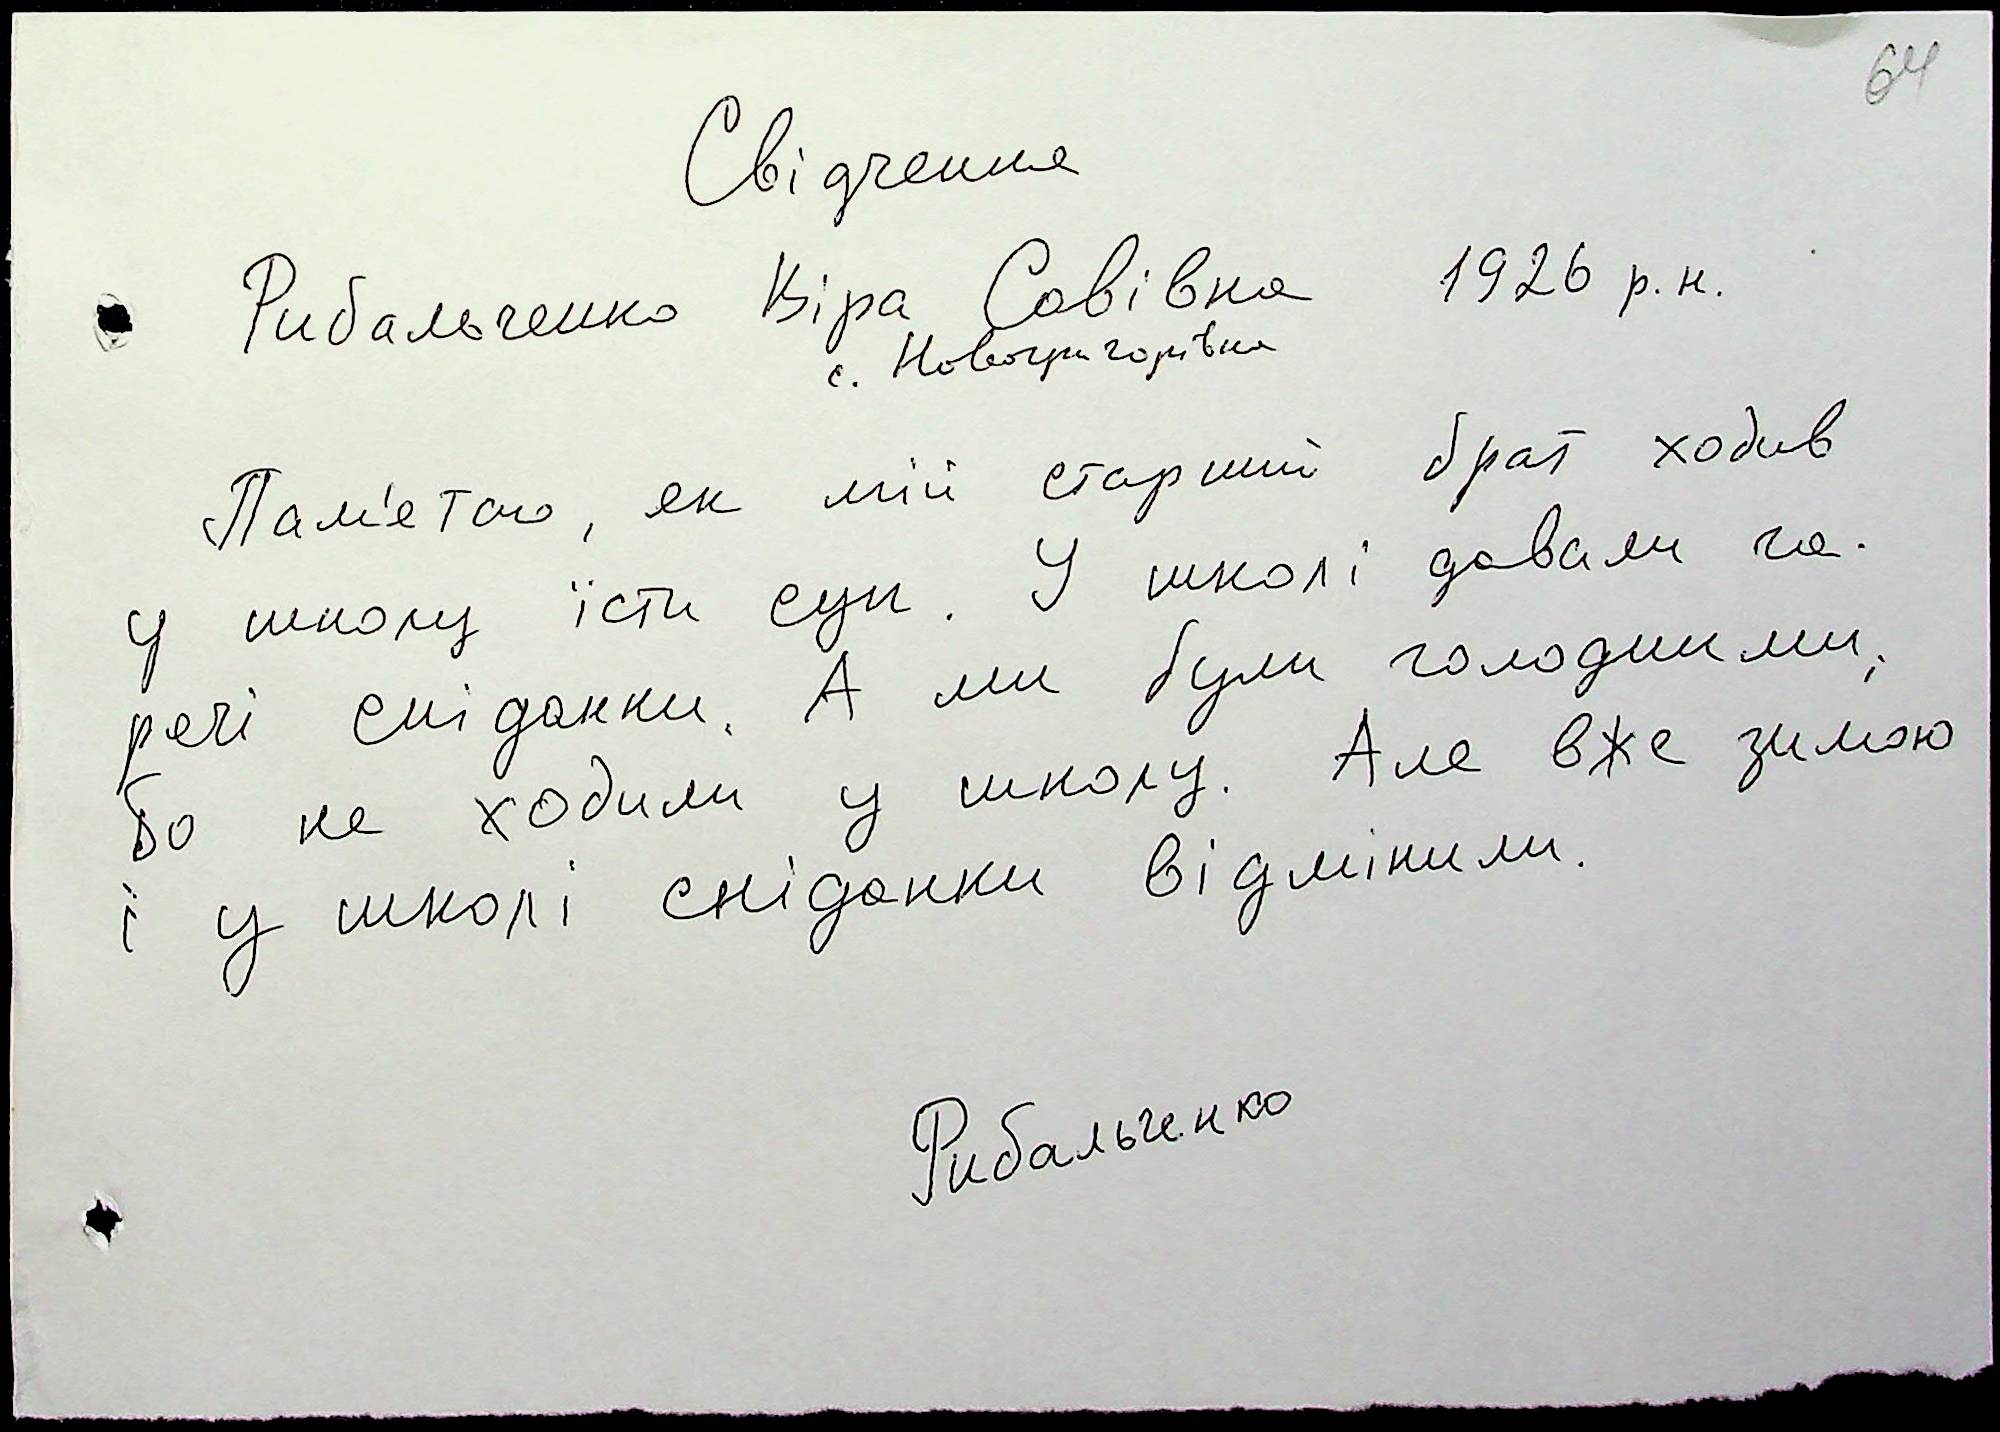 64
Свідчення
Рибальченко Віра Савівна 1926 р.н.
с. Новогригорівка
Пам'ятаю, як мій старший брат ходив
у школу їсти суп. У школі давали га-
речі сніданки. А ми були голодними,
бо не ходили у школу. Але вже зимою
і у школі сніданки відмінили.
Рибальченко